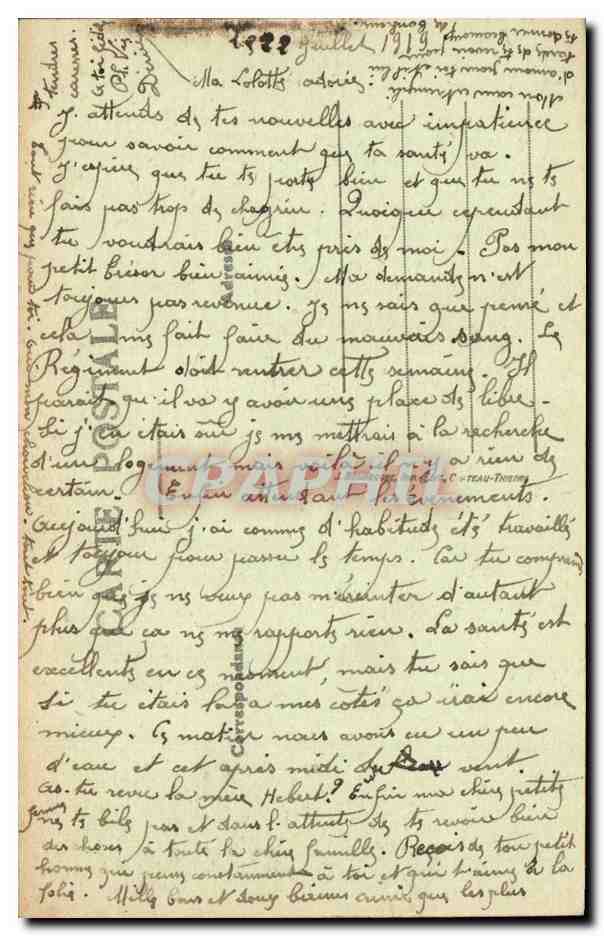 22 Juillet 1919
Ma Lolotte adorée.
J'attends de tes nouvelles avec impatience
pour savoir comment que ta santé va.
J'espère que tu te porte bien et que tu ne te
fais pas trop de chagrin. Quoique cependant
tu voudrais bien être près de moi. Pas mon
petit trésor bien aimée. Ma demande n'est
toujours pas revenue. Je ne sais que pensé et
cela me fait faire du mauvais sang. Le
Régiment doit rentrer cette semaine. Il
parait qu'il va y avoir une place de libre.
Si j'en étais sûr je me mettrais à la recherche
d'un logement mais voilà il n'y a rien de
certain. Enfin attendant les évènements.
Aujourd'hui j'ai comme d'habitude été travaillé
et toujour pour passer le temps. Car tu comprends
bien que je ne veux pas m'éreinter d'autant
plus que ça ne me rapporte rien. La santé est
excellente en ce moment, mais tu sais que
si tu étais là à mes côtés ça irai encore
mieux. Ce matin nous avons eu un peu
d'eau et cet après midi du vent.
As-tu revu la mère Hebert? Enfin ma chère petite
femme ne te bile pas et dans l'attente de te revoir bien
des choses à toute la chère famille. Reçois de ton petit
homme que pense constamment à toi et qui t'aime à la
folie. Mille bons et doux baisers ainsi que les plus
tendres
caresses.
A toi
Tout rien que pour toi.
CARTE POSTALE
Correspondance
Adresse
CPAPHIL